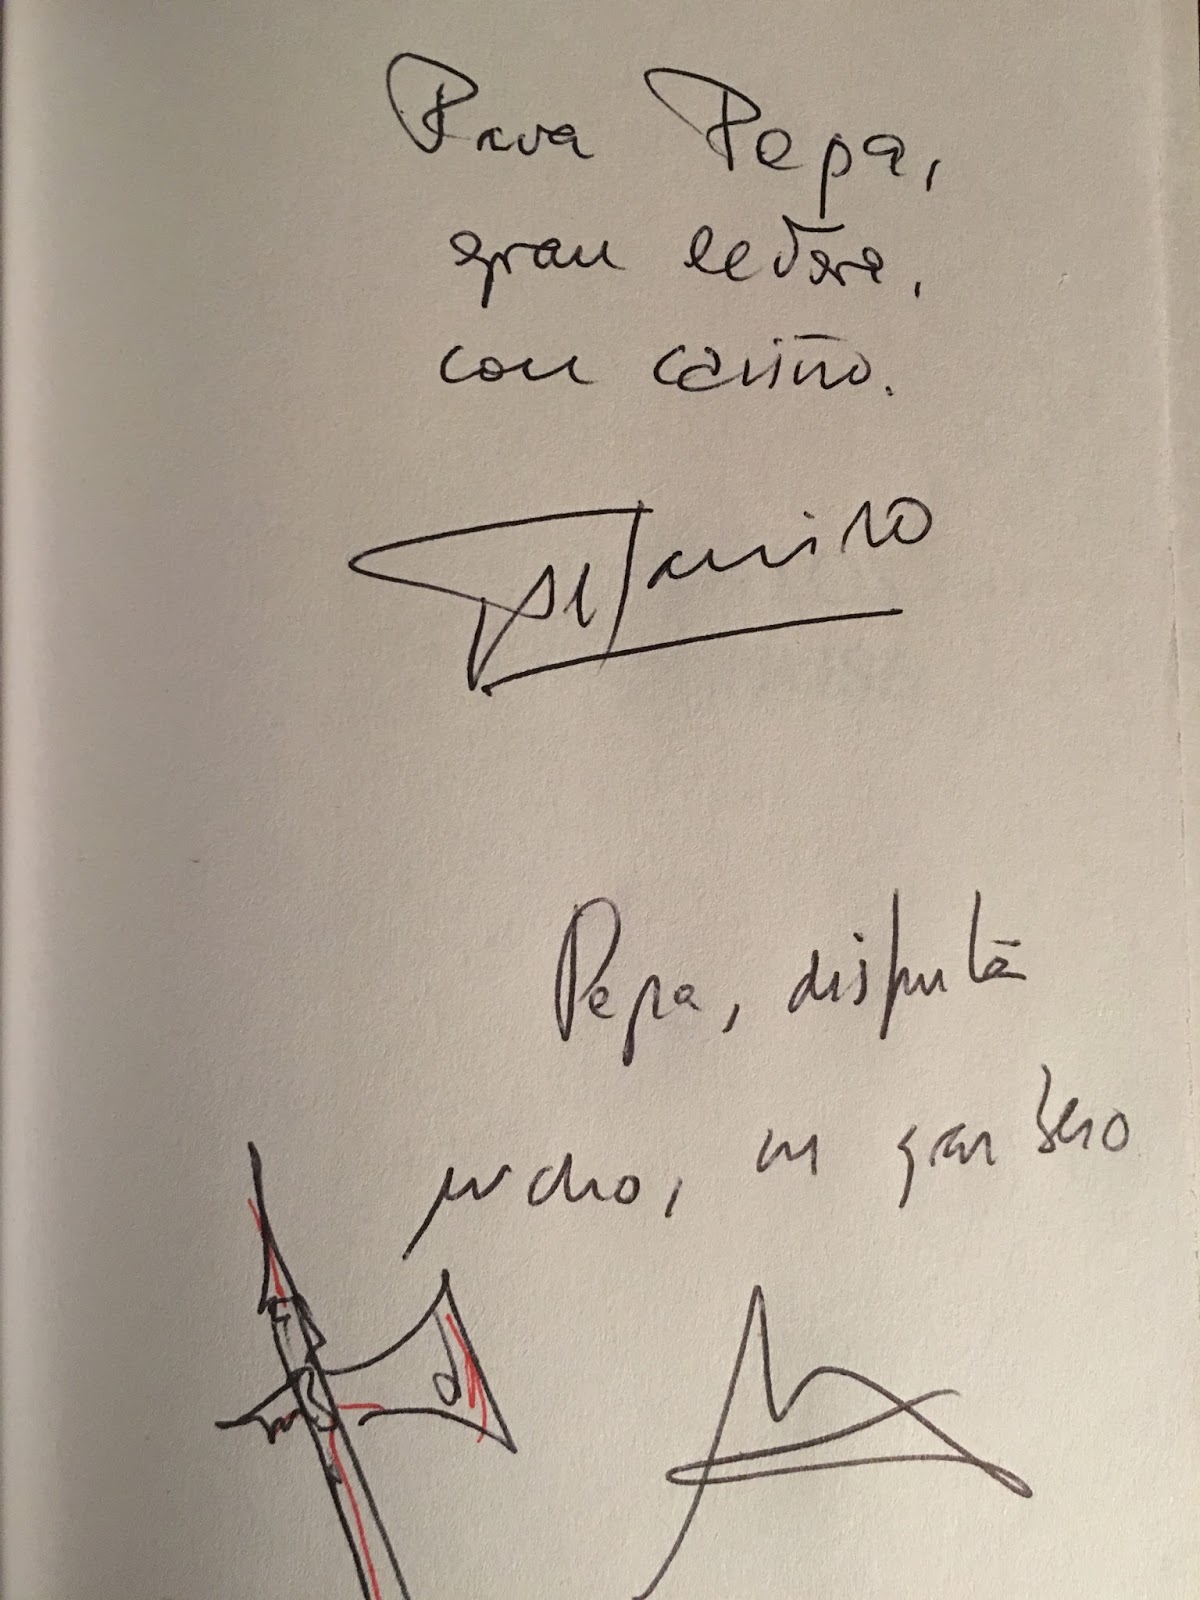 Para Pepa,
gran lectora,
con cariño.
Pepa, disfruta
mucho, un gran beso